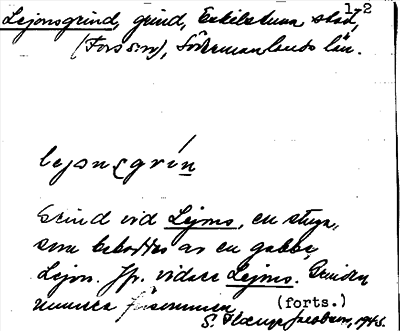 1-2
Lejonsgrind, grind, Eskilstuna stad,
(Fors sn), Södermanlands län.
lejonsgrín
Grind vid Lejons, en stuga,
som beboddes av en gubbe,
Lejon. Jfr. vidare Lejons. Grinden
numera försvunnen
(forts.)
S. Jacobson, 1945.